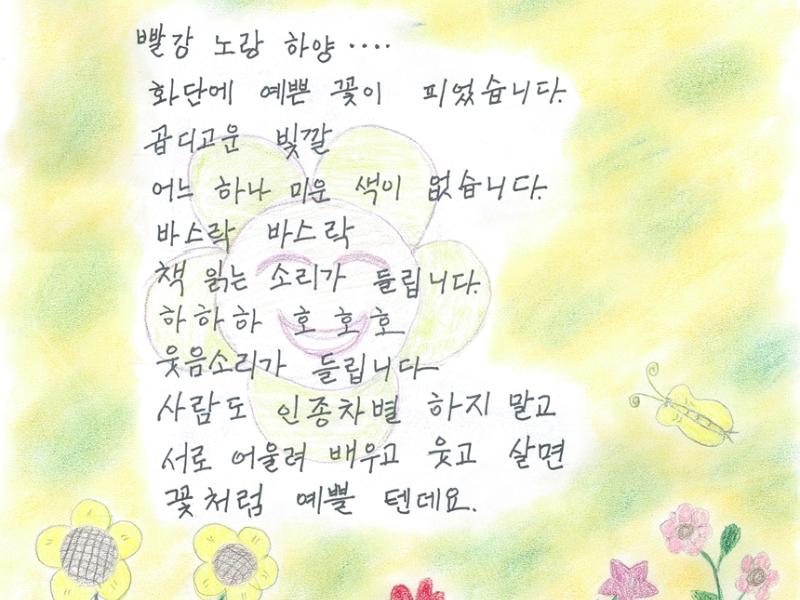 빨강 노랑 하양 ····
화단에 예쁜 꽃이 피었습니다.
곱디고운 빛깔
어느 하나 미운 색이 없습니다.
바스락 바스락
책 읽는 소리가 들립니다.
하하하 호호호
웃음소리가 들립니다
사람도 인종차별 하지 말고
서로 어울려 배우고 웃고 살면
꽃처럼 예쁠 텐데요.